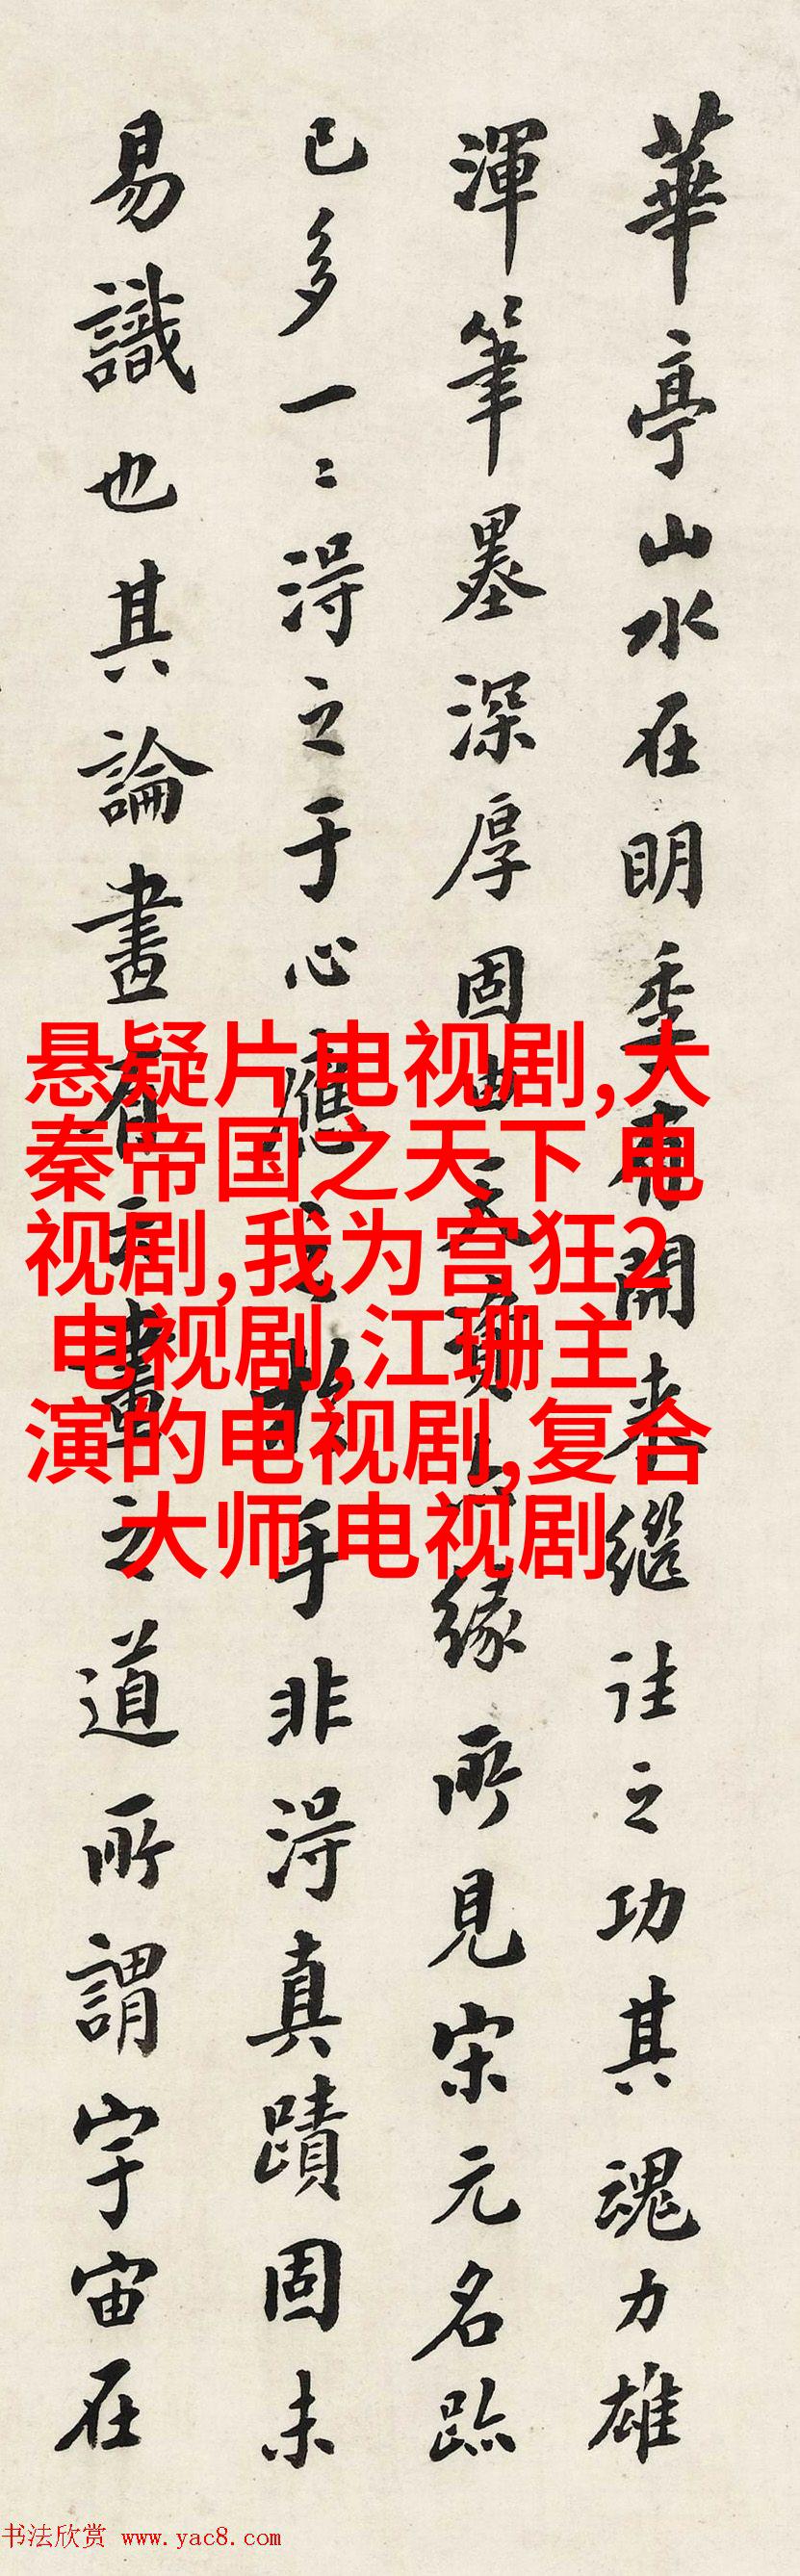 華亭山水在明季有開來繼往之功其魂力雄
渾筆墨深厚固由天資亦緣所見宋元名跡
已多一二得之于心應之於手非得真蹟固未
易識也其論畫有云畫之道所謂宇宙在
悬疑片电视剧,大
秦帝国之天下 电
视剧,我为宫狂2
电视剧,江珊主
演的电视剧,复合
大师 电视剧
书法欣赏 www.yac8.com